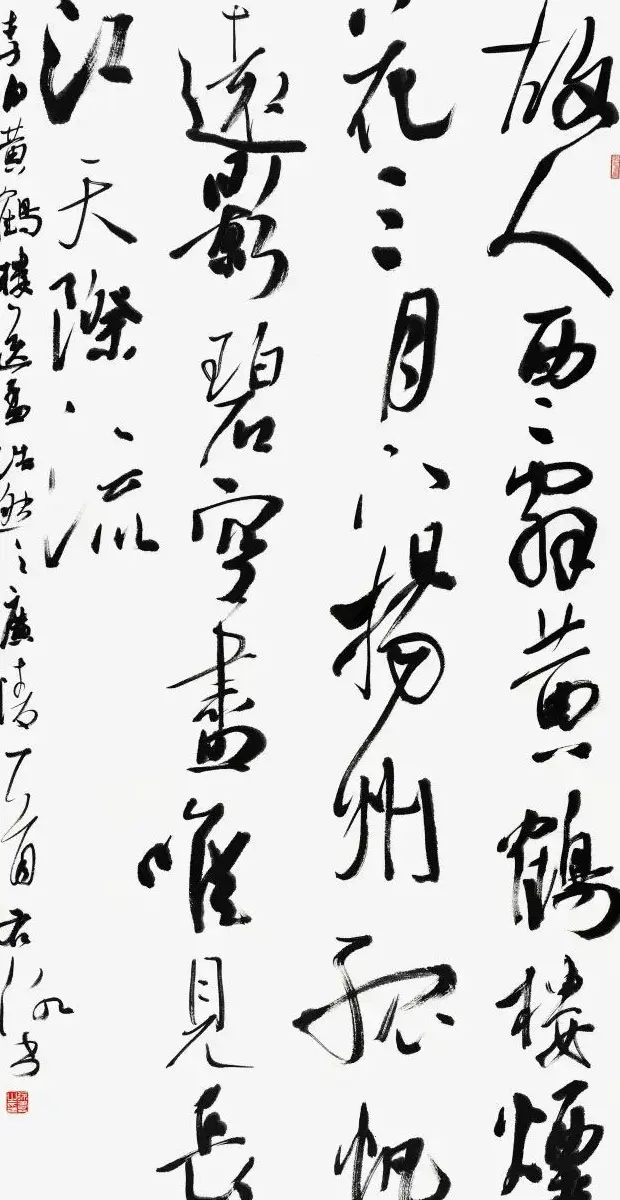 故人西辭黄鶴樓煙
花三月下揚州孤帆
遠影碧空盡唯見長
江天際流
李白黄鶴樓送孟浩然之廣陵一首書